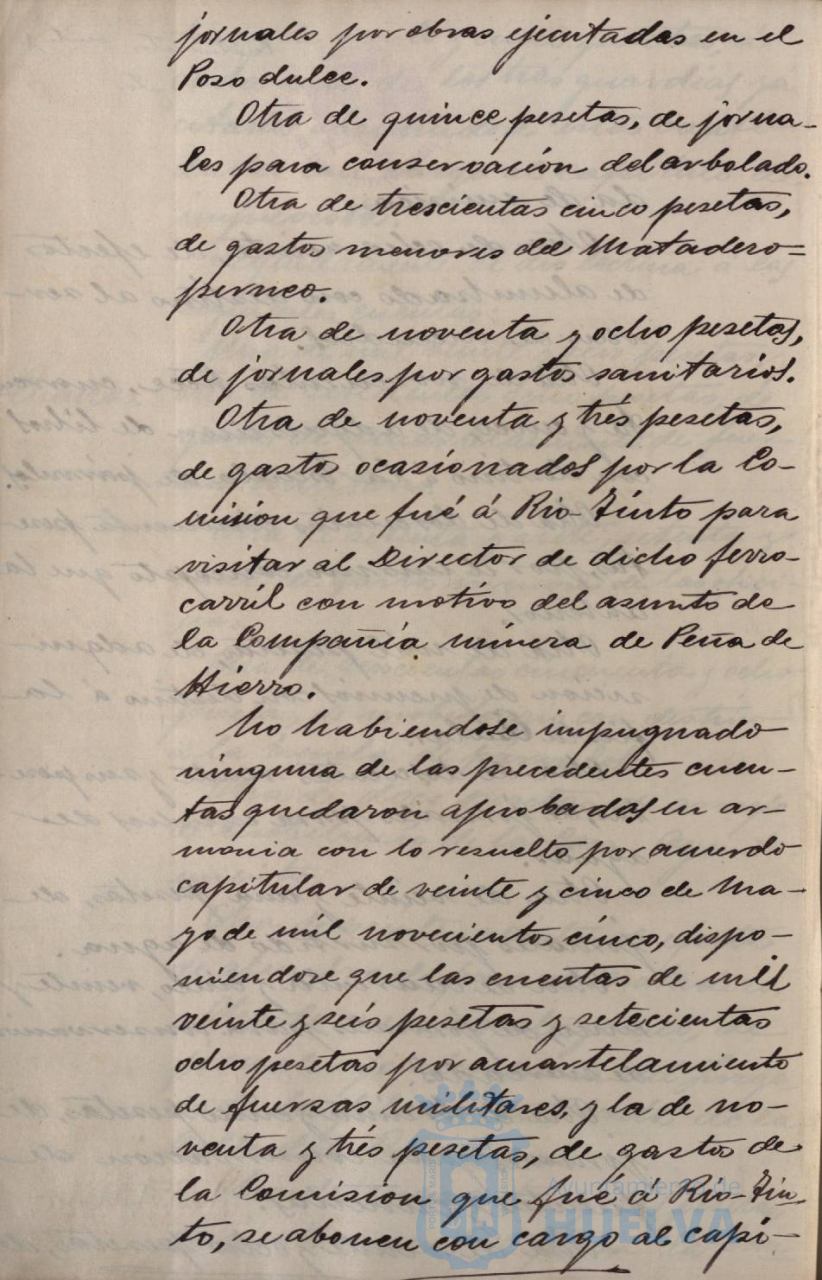 jornales por obras ejecutadas en el
Poso dulce.
Otra de quince pesetas, de jorna-
les para conservación del arbolado.
Otra de trescientas cinco pesetas,
de gastos menores del Matadero=
perneo.
Otra de noventa y ocho pesetas,
de jornales por gastos sanitarios.
Otra de noventa y trés pesetas,
de gastos ocasionados por la Co-
mision que fué á Rio-Tinto para
visitar al Director de dicho ferro-
carríl con motivo del asunto de
la Compañía minera de Peña de
Hierro.
No habiendose impugnado
ninguna de las precedentes cuen-
tas quedaron aprobadas en ar-
monia con lo resuelto por acuerdo
capitular de veinte y cinco de Ma-
yo de mil novecientos cinco, dispo-
niendose que las cuentas de mil
veinte y seis pesetas y setecientas
ocho pesetas por acuartelamiento
de fuersas militares, y la de no-
venta y trés pesetas, de gastos de
la Comision que fué á Rio-Tin-
to, se abonen con cargo al capi-
Ayuntamiento de
HUELVA